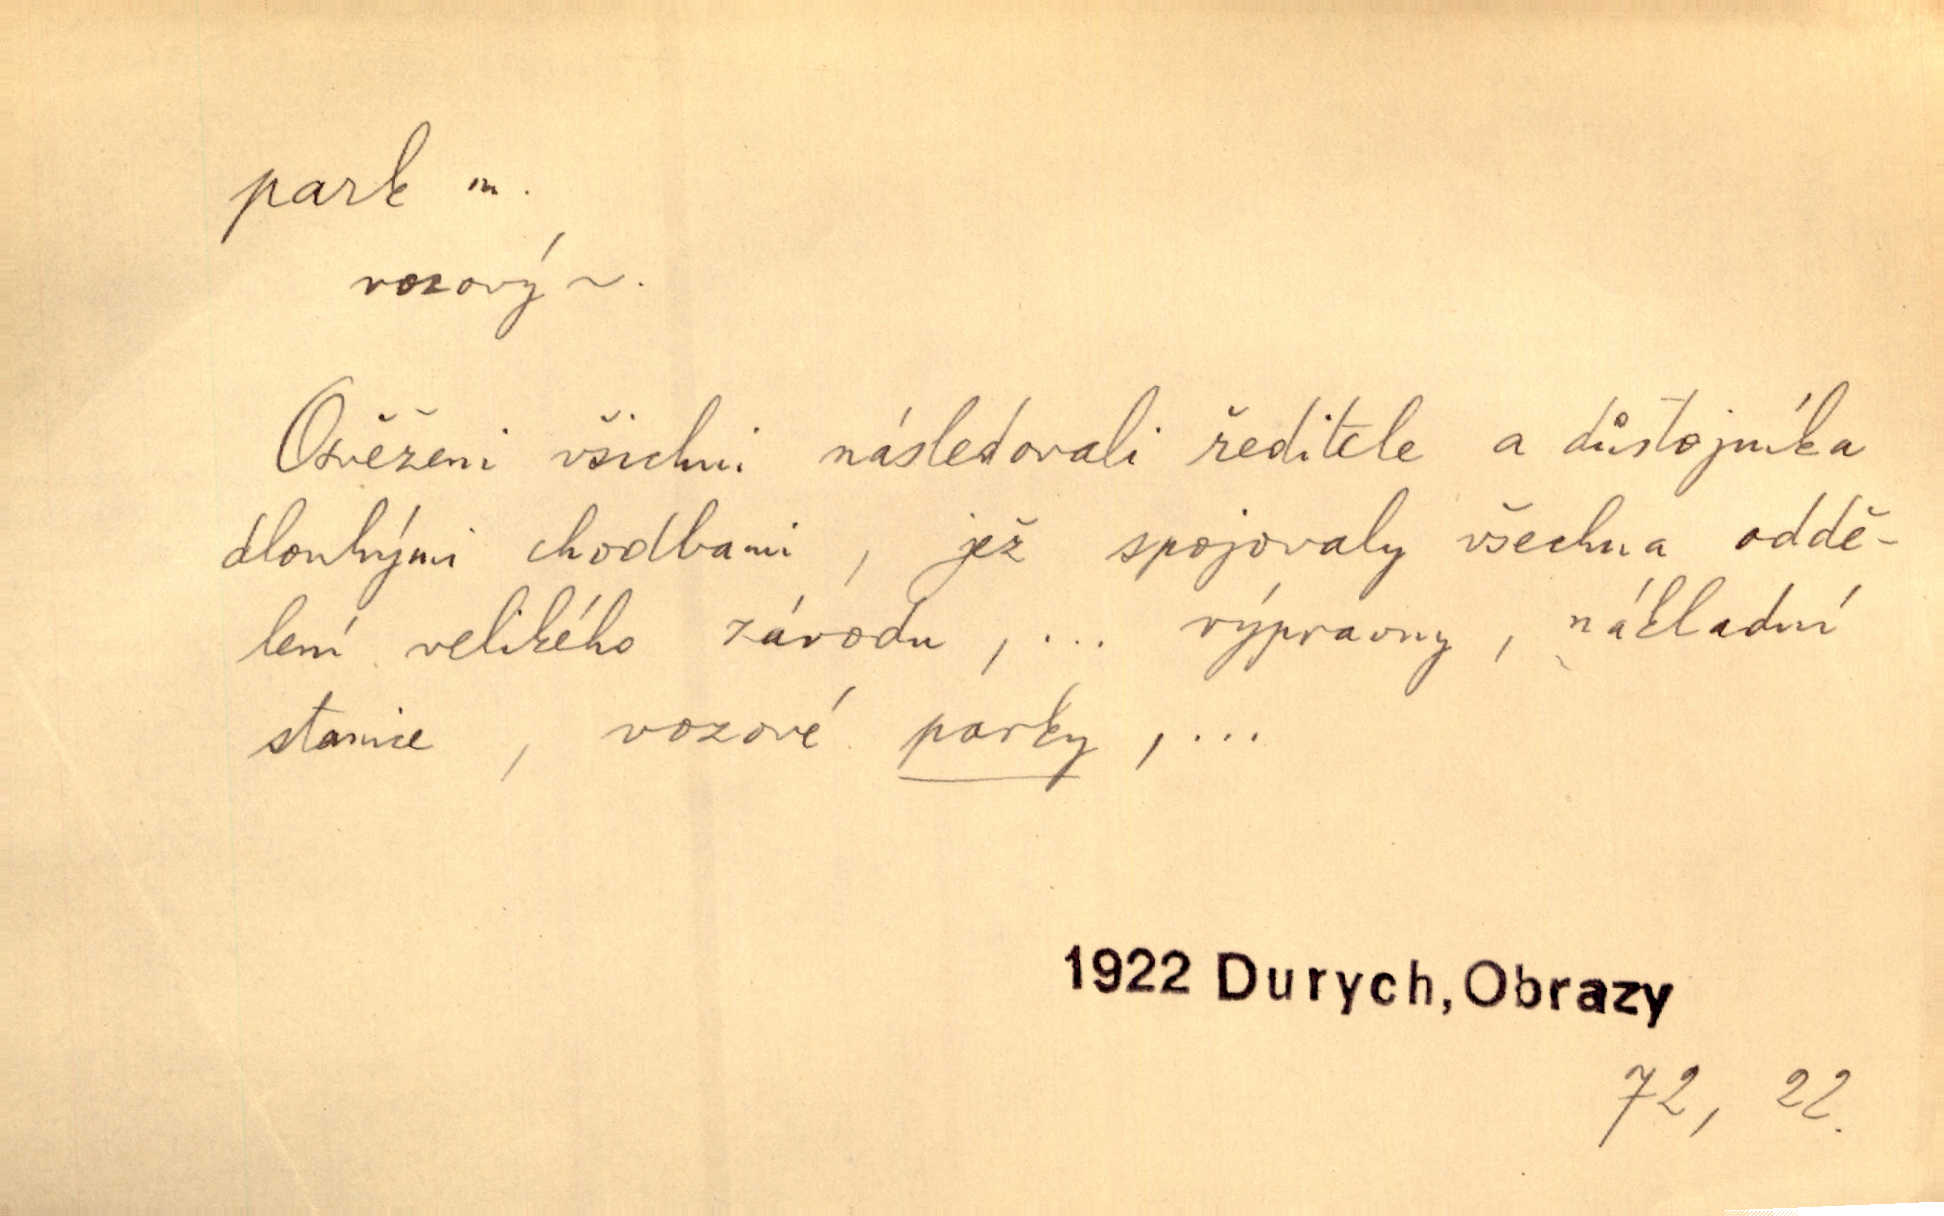 park m.
vozový ~.
Osvěženi všichni následovali ředitele a důstojníka
dlouhými chodbami, jež spojovaly všechna oddě-
lení velikého závodu, ... výpravny, nákladní
stanice, vozové parky, ...
1922 Durych, Obrazy
72, 22.